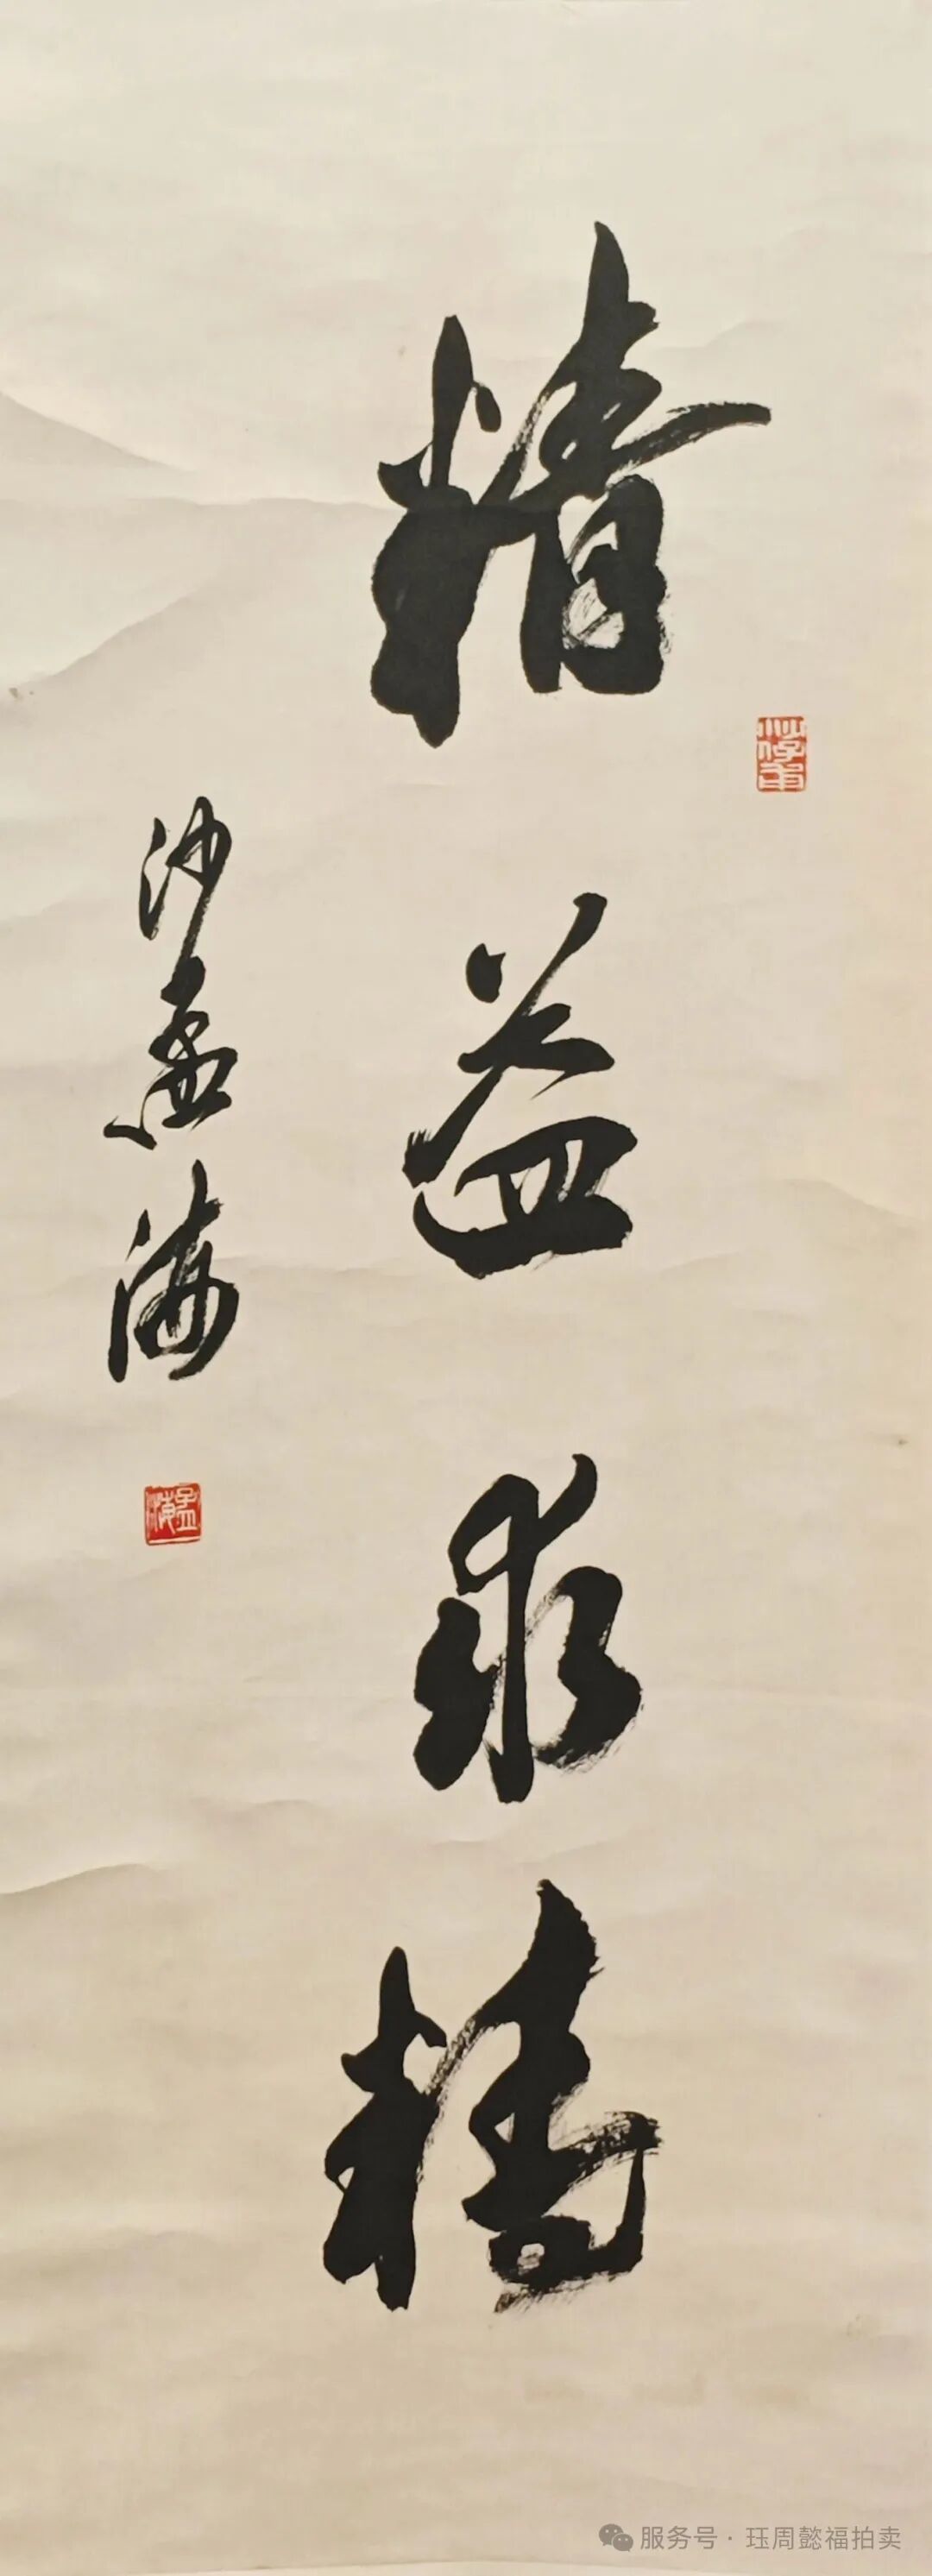 精益求精
沙孟海
孟海
服务号·珏周懿福拍卖